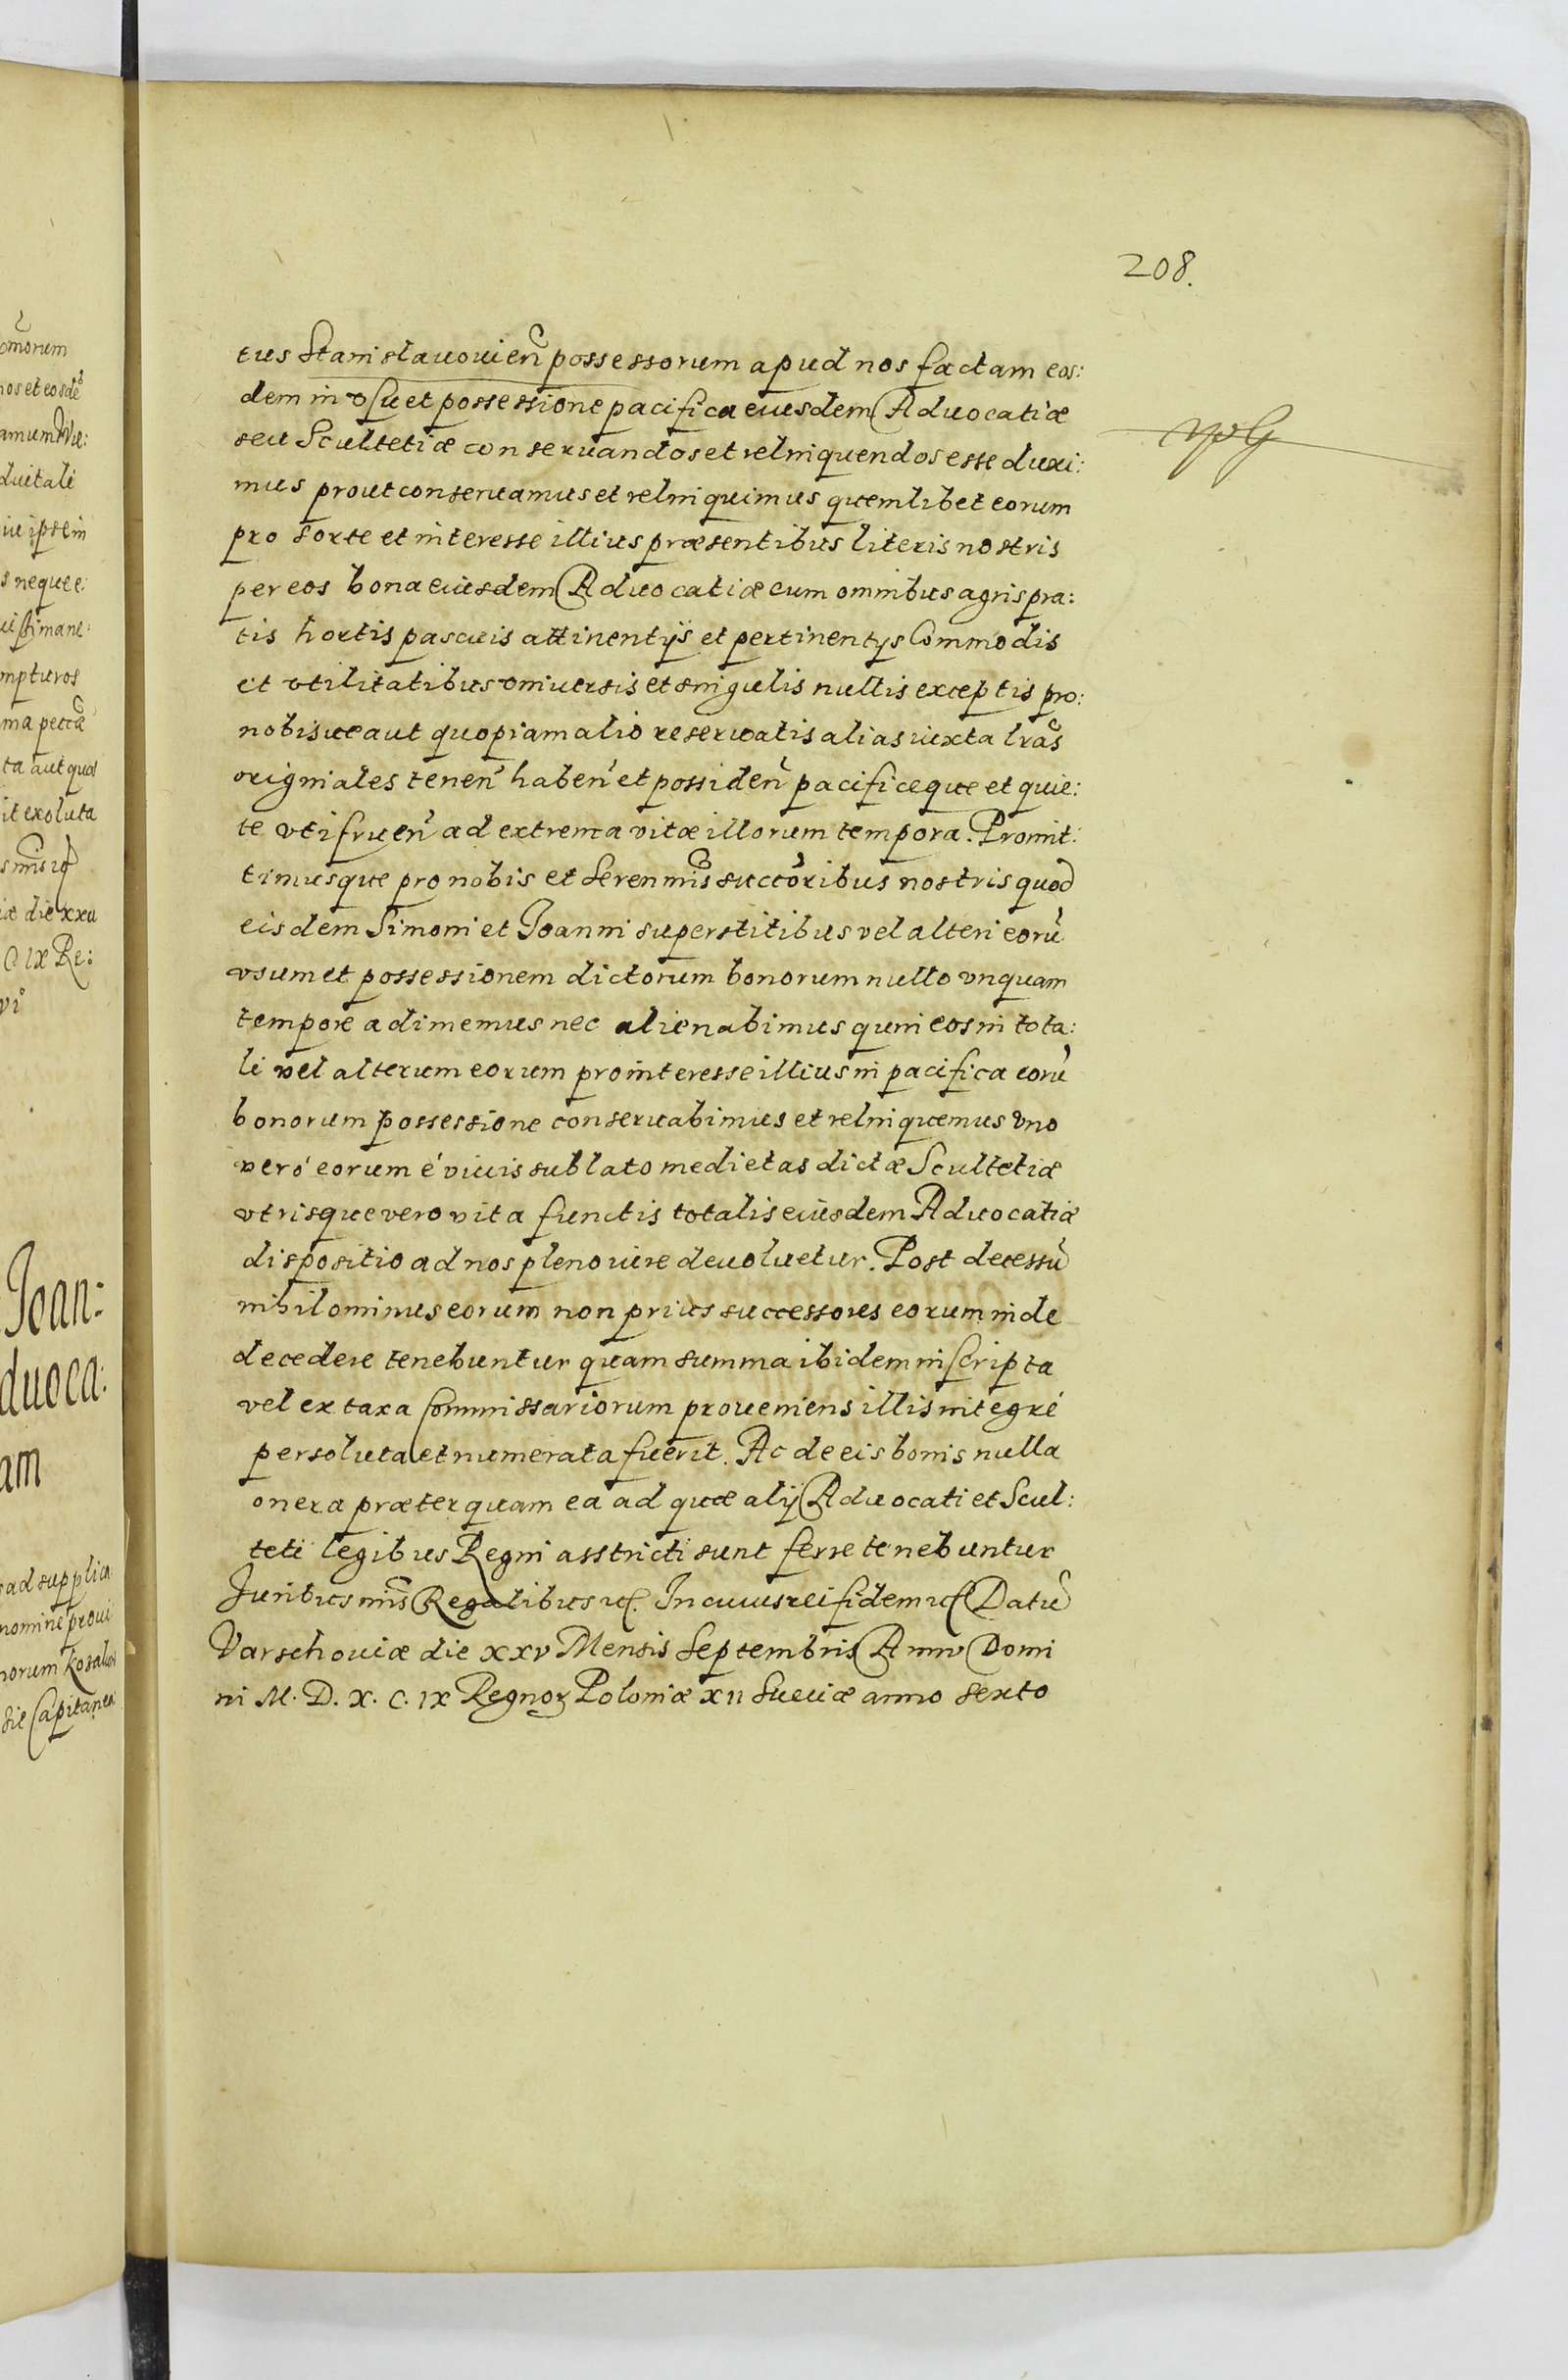 208.
tus Stanislauouien̄ possessorum apud nos factam eos:
dem in vsu et possessione pacifica eiusdem Aduocatiæ
seu Scultetiæ conseruandos et relinquendos esse duxi:
mus prout conseruamus et relinquimus quemlibet eorum
pro sorte et interesse illius præsentibus literis nostris
per eos bona eiusdem Aduocatiæ cum omnibus agris pra:
tis hortis pascuis attinentijs et pertinentijs Commodis
et vtilitatibus vniuersis et singulis nullis exceptis pro:
nobisue aut quopiam alio reseruatis alias iuxta lrās
originales tenen̄ haben̄ et possiden̄ pacificeque et quie:
te vti fruen̄ ad extrema vitæ illorum tempora. Promit:
timusque pro nobis et Serenmīs succōribus nostris quod
eisdem Simoni et Joanni superstitibus vel alteri eorū
vsum et possessionem dictorum bonorum nullo vnquam
tempore adimemus nec alienabimus quin eos in tota:
li vel alterum eorum pro interesse illius in pacifica eorū
bonorum possessione conseruabimus et relinquemus vno
veró eorum é viuis sublato medietas dictæ Scultetiæ
vtrisque vero vita functis totalis eiusdem Aduocatiæ
dispositio ad nos pleno iure deuoluetur. Post decessū
nihilominus eorum non prius successores eorum inde
decedere tenebuntur quam summa ibidem inscripta
vel ex taxa Commissariorum proueniens illis integré
persoluta et numerata fuerit. Ac de eis bonis nulla
onera præterquam ea ad quæ alij Aduocati et Scul:
teti legibus Regni asstricti sunt ferre tenebuntur
Juribus nr̄is Regalibus ꝛc. In cuius rei fidem ꝛc Datū
Varschouiæ die xxv Mensis Septembris Anno Domi
ni M. D. X. C. IX Regnoꝝ Poloniæ XII Sueciæ anno sexto
omorum
nos et eosdē
duitali
ipse in
s neque e:
mpturos
ta aut quo
it exoluta
die xxv
C IX Re:
Joan:
duoca:
am
ad supplica
nomine
Capitanea